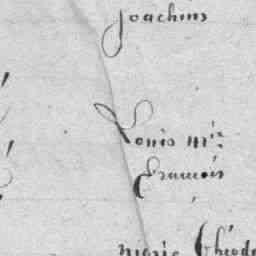 Joachins
Louis m.in
francois
marie Théod